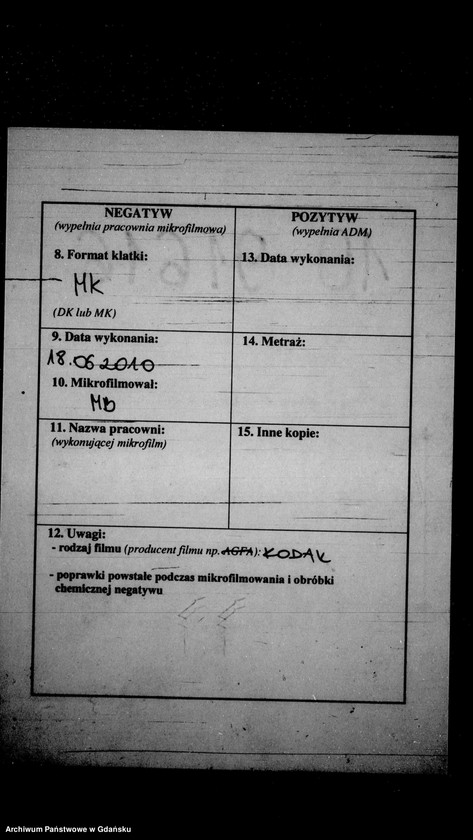 NEGATYW
(wypełnia pracownia mikrofilmowa)
8. Format klatki:
MK
(DK lub MK)
9. Data wykonania:
18.06.2010
10. Mikrofilmował:
Mb
11. Nazwa pracowni:
(wykonującej mikrofilm)
POZYTYW
(wypełnia ADM)
13. Data wykonania:
14. Metraż:
15. Inne kopie:
12. Uwagi:
- rodzaj filmu (producent filmu np. AGFA): KODAK
- poprawki powstałe podczas mikrofilmowania i obróbki
chemicznej negatywu
Archiwum Państwowe w Gdańsku